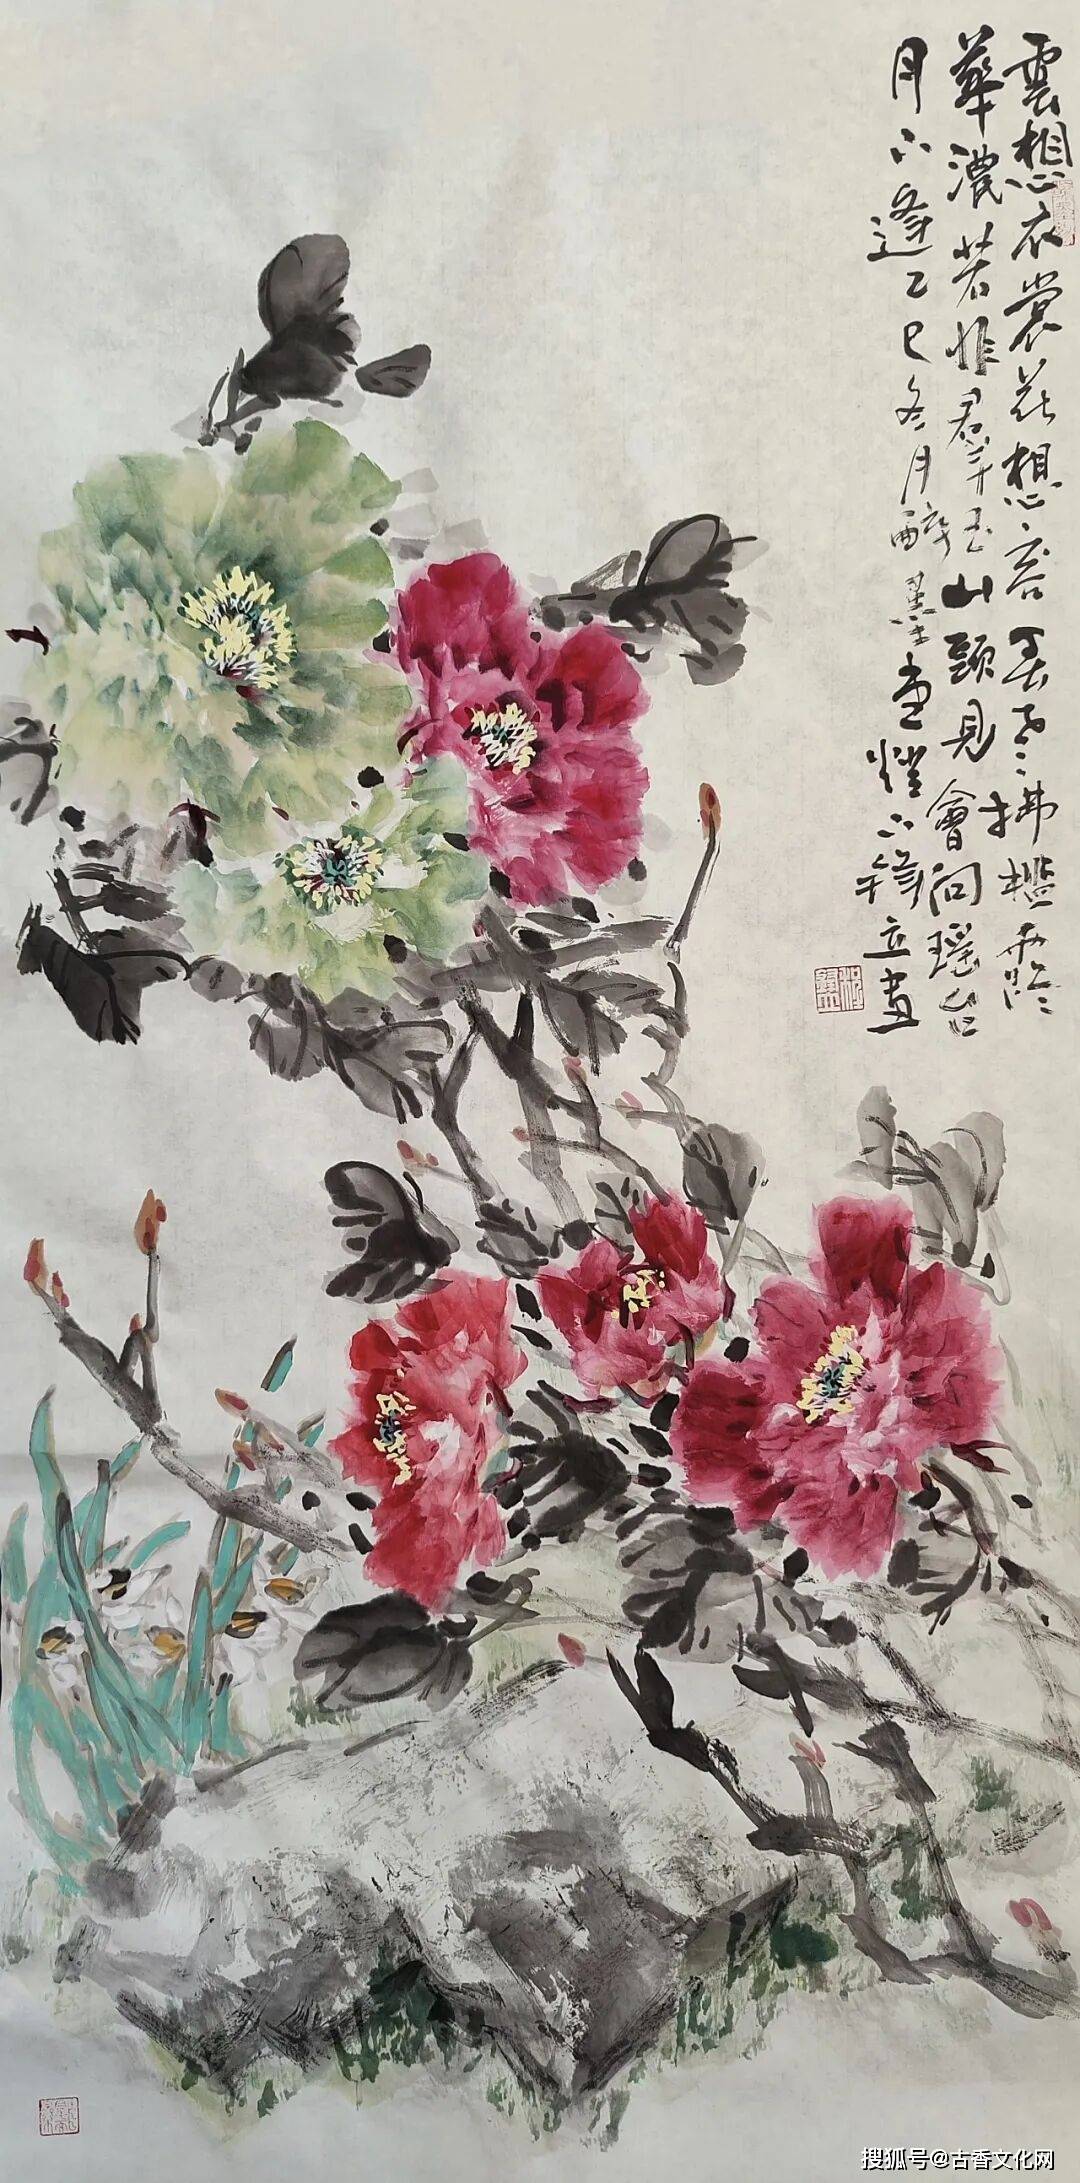 雲想衣裳花想容春風拂檻露
華濃若非羣玉山頭見會向瑶台
月下逢乙巳冬月醉墨堂燈下立畫
搜狐号@古香文化网